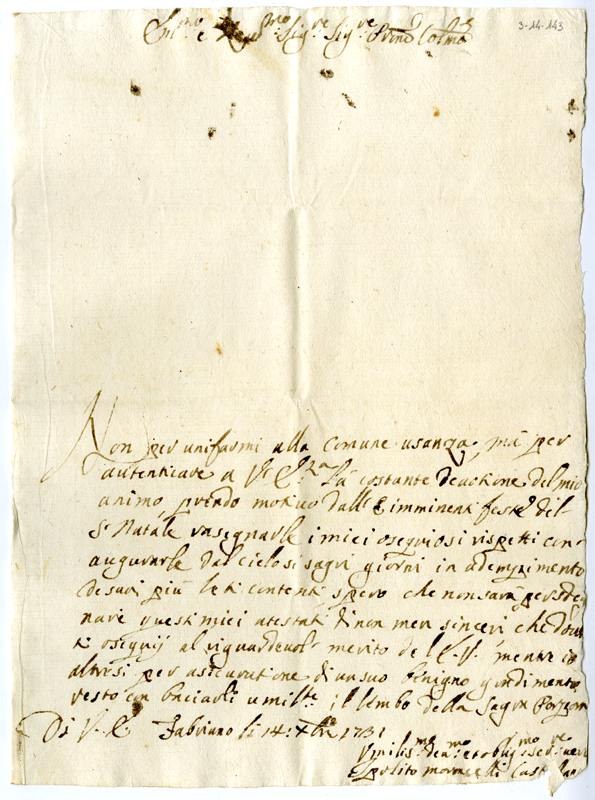 Em.mo e Rev.mo Sig.re Sig.re Prone Col.mo
3-14-143
Non per unifarmi alla comune usanza, mà per
autenticare a V.ra E.za la costante devotione del mio
animo, prendo motivo dall'imminenti feste del
S. Natale rasegnarle i miei osequiosi rispetti con
augurarle dal cielo si sagri giorni in adempimento
de suoi più leti contenti, spero che non sarà per sde
nare questi miei atestati di non men sinceri che
ti osequij al riguardevol merito dell'E.V. mentre io
altresi per asicuratione di un suo benigno gradimento
resto con baciarli umil.te il lembo della Sagra Porpora
Di V. E. Fabriano li 14: Xbre 1731
Umilis.mo dev.mo et oblig.mo ser.re vero
Ipolito